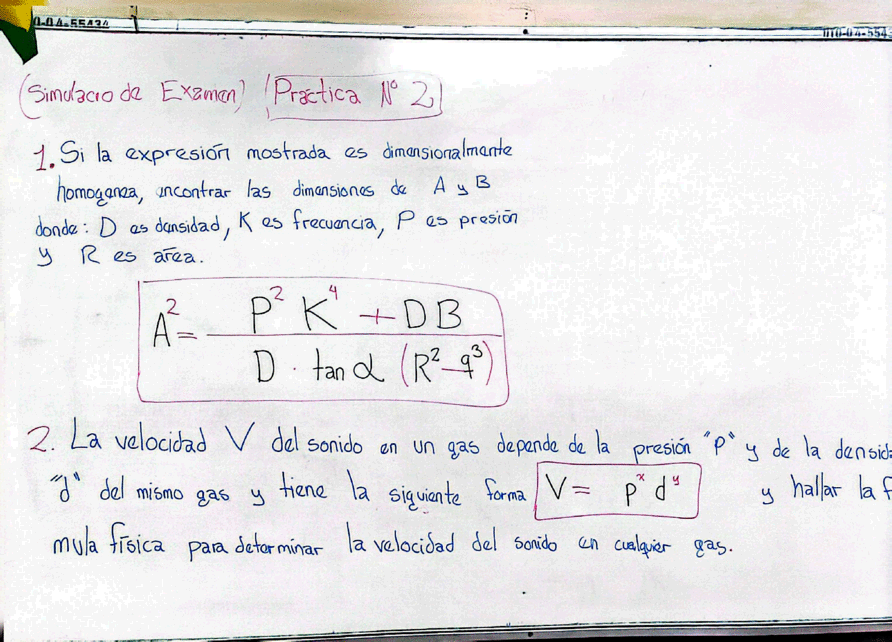 (Simulacro de Examen) Practica N° 2
1. Si la expresión mostrada es dimensionalmente
homogenea, encontrar las dimensiones de A y B
donde: D es densidad, K es frecuencia, P es presión
y R es area.
A² = P² K⁴ + DB / D · tan α (R² - q³)
2. La velocidad V del sonido en un gas depende de la presión "P" y de la densid
"d" del mismo gas y tiene la siguiente forma V = pˣ dʸ y hallar la f
mula física para determinar la velocidad del sonido en cualquier gas.